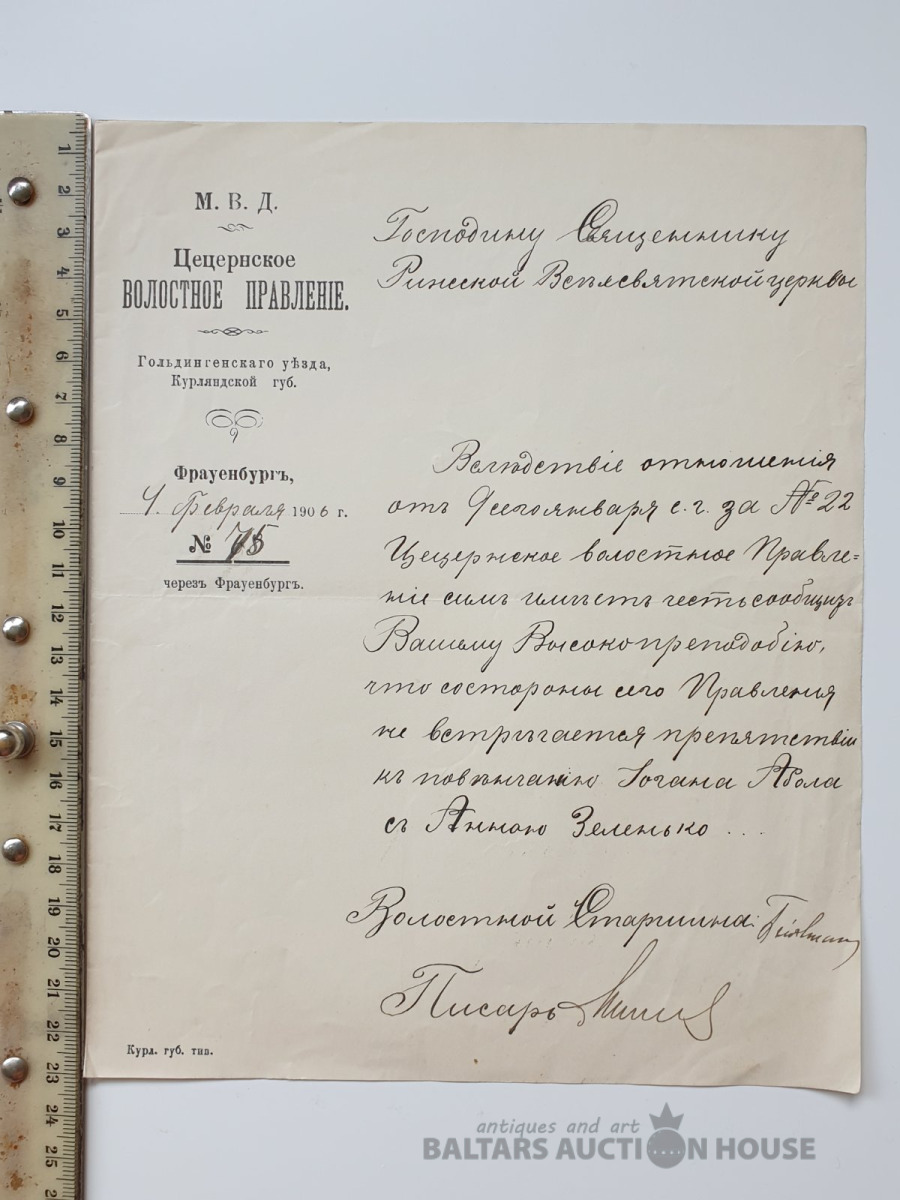 М. В. Д.
Цецернское
ВОЛОСТНОЕ ПРАВЛЕНІЕ.
Гольдингенскаго уѣзда,
Курляндской губ.
Фрауенбургъ,
4. Февраля 1906 г.
№ 75
черезъ Фрауенбургъ.
Господину Священнику
Всѣхсвятской церквы
Вслѣдствіе отношенія
отъ 9 сего января с. г. за № 22
Цецернское волостное Правле=
ніе симъ имѣетъ честь сообщить
Вашему Высокопреподобію,
что со стороны сего Правленія
не встрѣчается препятствій
къ повѣнчанію Іогана Абола
съ Анною Зеленько...
Волостной Старшина:
Писарь
Курл. губ. тип.
1
2
3
4
5
6
7
8
9
10
11
12
13
14
15
16
17
18
19
20
21
22
23
24
25
antiques and art
BALTARS AUCTION HOUSE